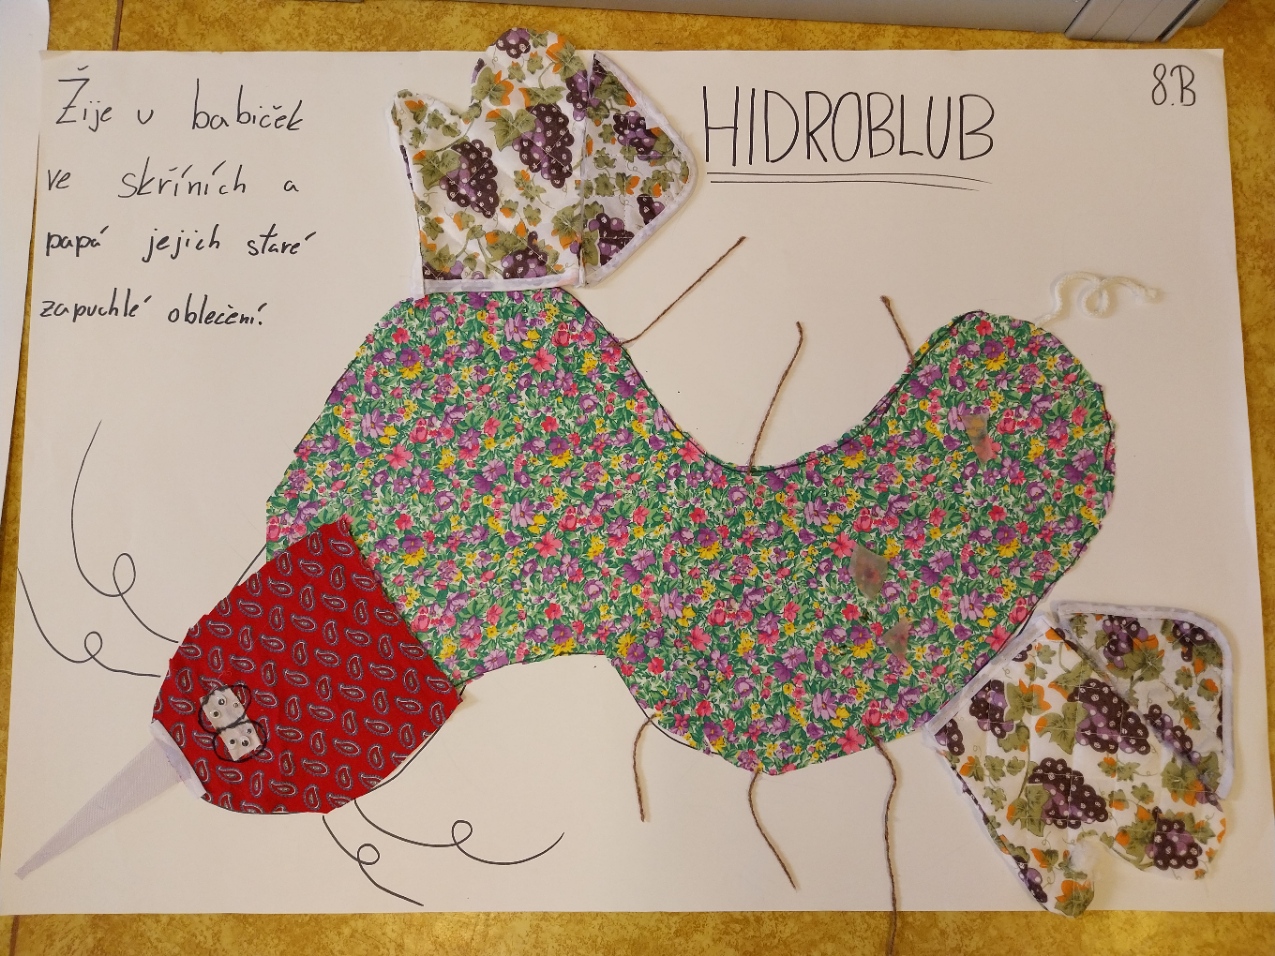 Žije u babiček
ve skříních a
papá jejich staré
zapuchlé oblečení.
HIDROBLUB
8.B